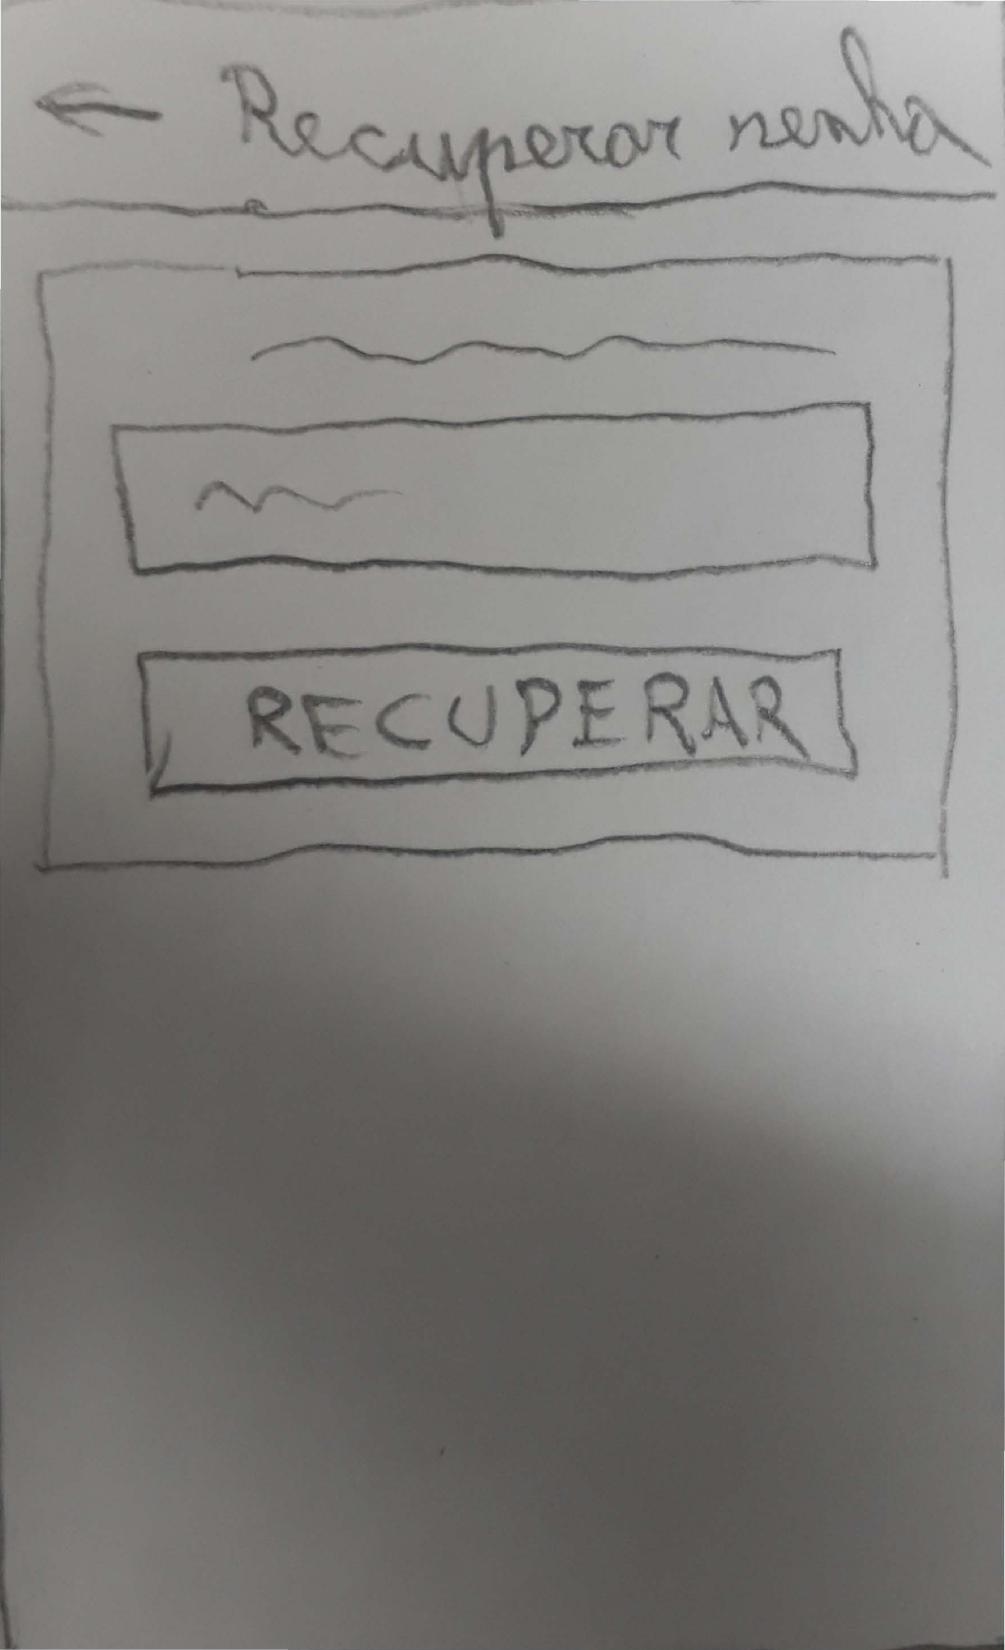 ← Recuperar senha
RECUPERAR